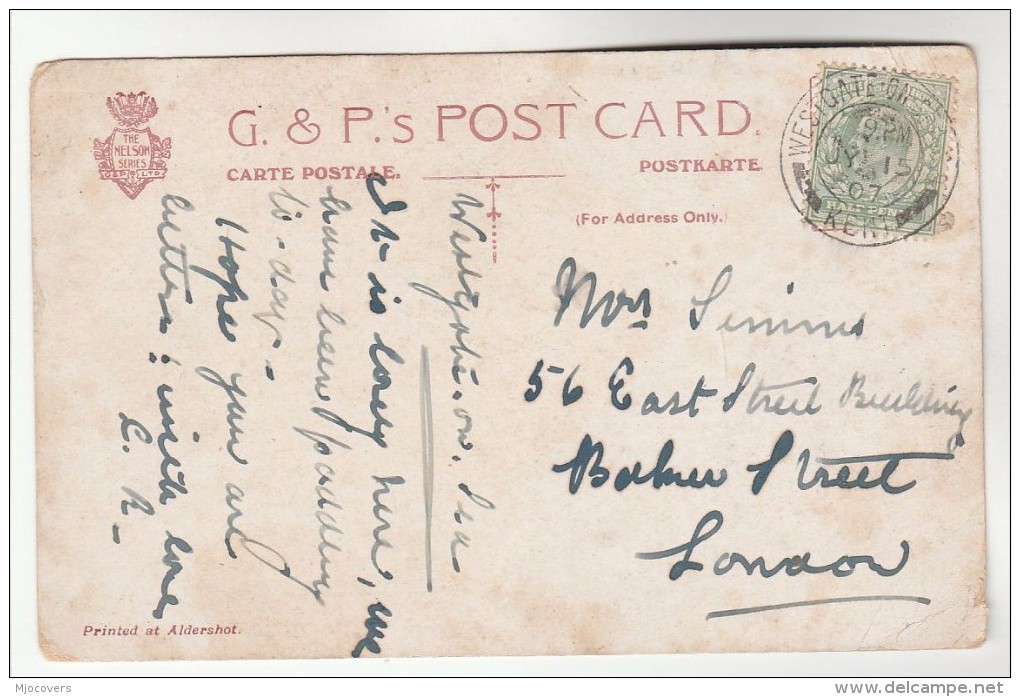 THE
NELSON
SERIES
G & P LTD.
G. & P.'s POST CARD.
CARTE POSTALE.
POSTKARTE
(For Address Only.)
WESTGATE-ON-
JY 15
07
KENT
Westgate-on-Sea
It is lovey here, we
have been paddling
to-day-
Hope you are
better: with love
Mrs Simms
56 East Street Buildings
Baker Street
London
Printed at Aldershot.
Mjocovers
delcampe.net